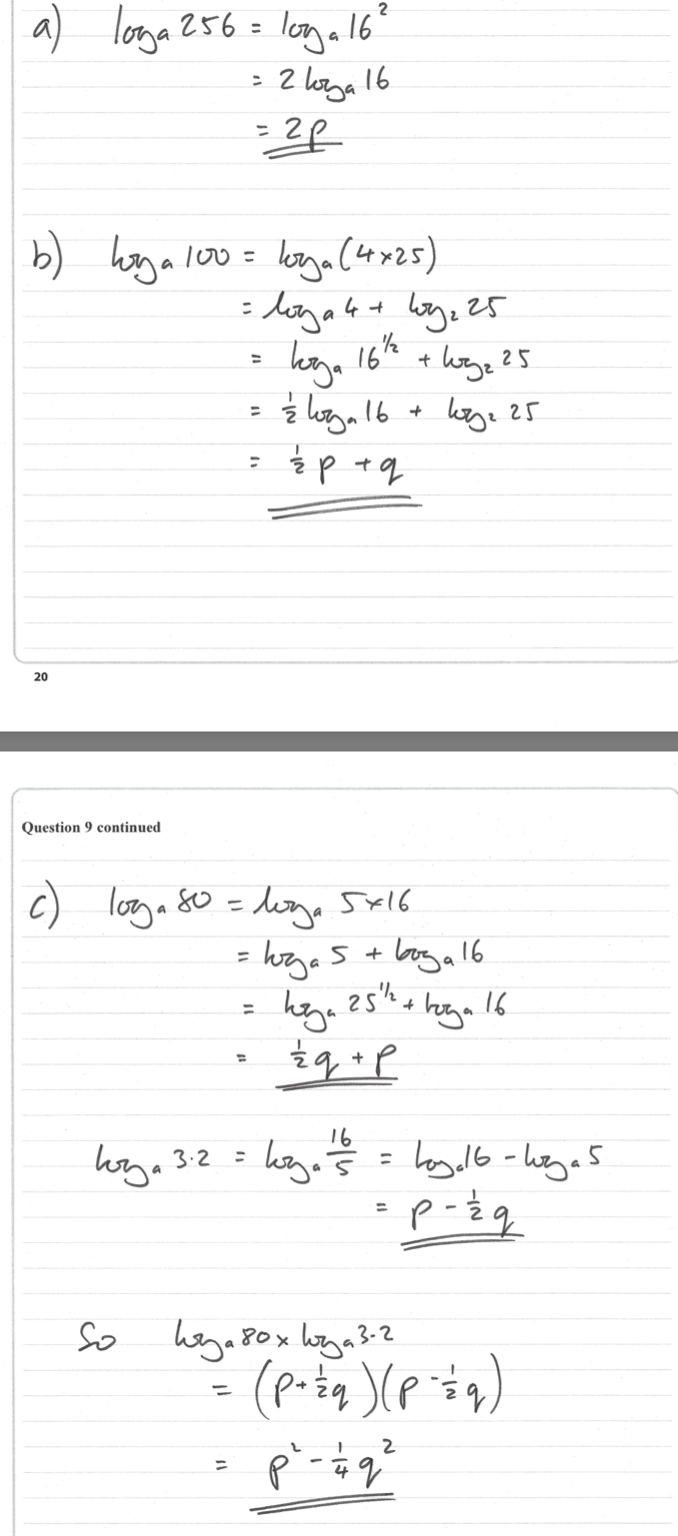 a) logₐ 256 = logₐ 16²
= 2 logₐ 16
= 2p
b) logₐ 100 = logₐ (4×25)
= logₐ 4 + log₂ 25
= logₐ 16^½ + log₂ 25
= ½ logₐ 16 + log₂ 25
= ½ p + q
20
Question 9 continued
c) logₐ 80 = logₐ 5×16
= logₐ 5 + logₐ 16
= logₐ 25^½ + logₐ 16
= ½ q + p
logₐ 3·2 = logₐ 16/5 = logₐ 16 - logₐ 5
= p - ½ q
So logₐ 80 × logₐ 3·2
= (p + ½ q)(p - ½ q)
= p² - ¼ q²